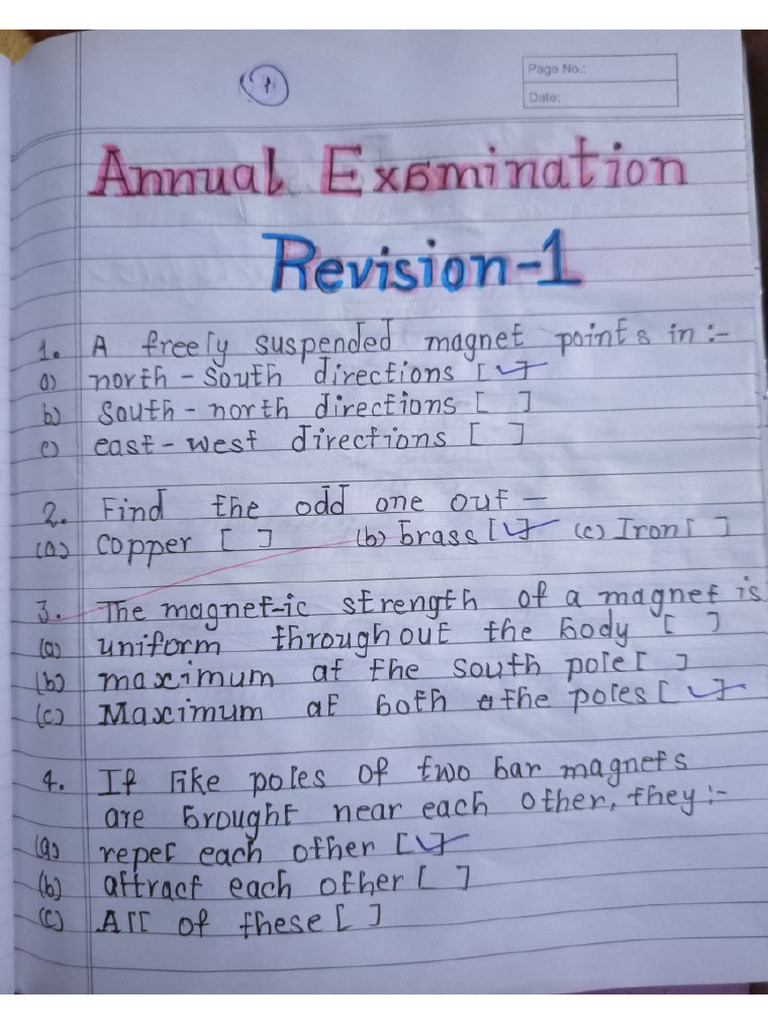 1
Page No.:
Date:
Annual Examination
Revision-1
1. A freely suspended magnet points in :-
a) north - South directions [✓]
b) South - north directions [ ]
c) east - west directions [ ]
2. Find the odd one out —
(a) Copper [ ] (b) brass [✓] (c) Iron [ ]
3. The magnet-ic strength of a magnet is
(a) uniform throughout the body [ ]
(b) maximum at the south pole [ ]
(c) Maximum at both the poles [✓]
4. If like poles of two bar magnets
are brought near each other, they :-
(a) repel each other [✓]
(b) attract each other [ ]
(c) All of these [ ]